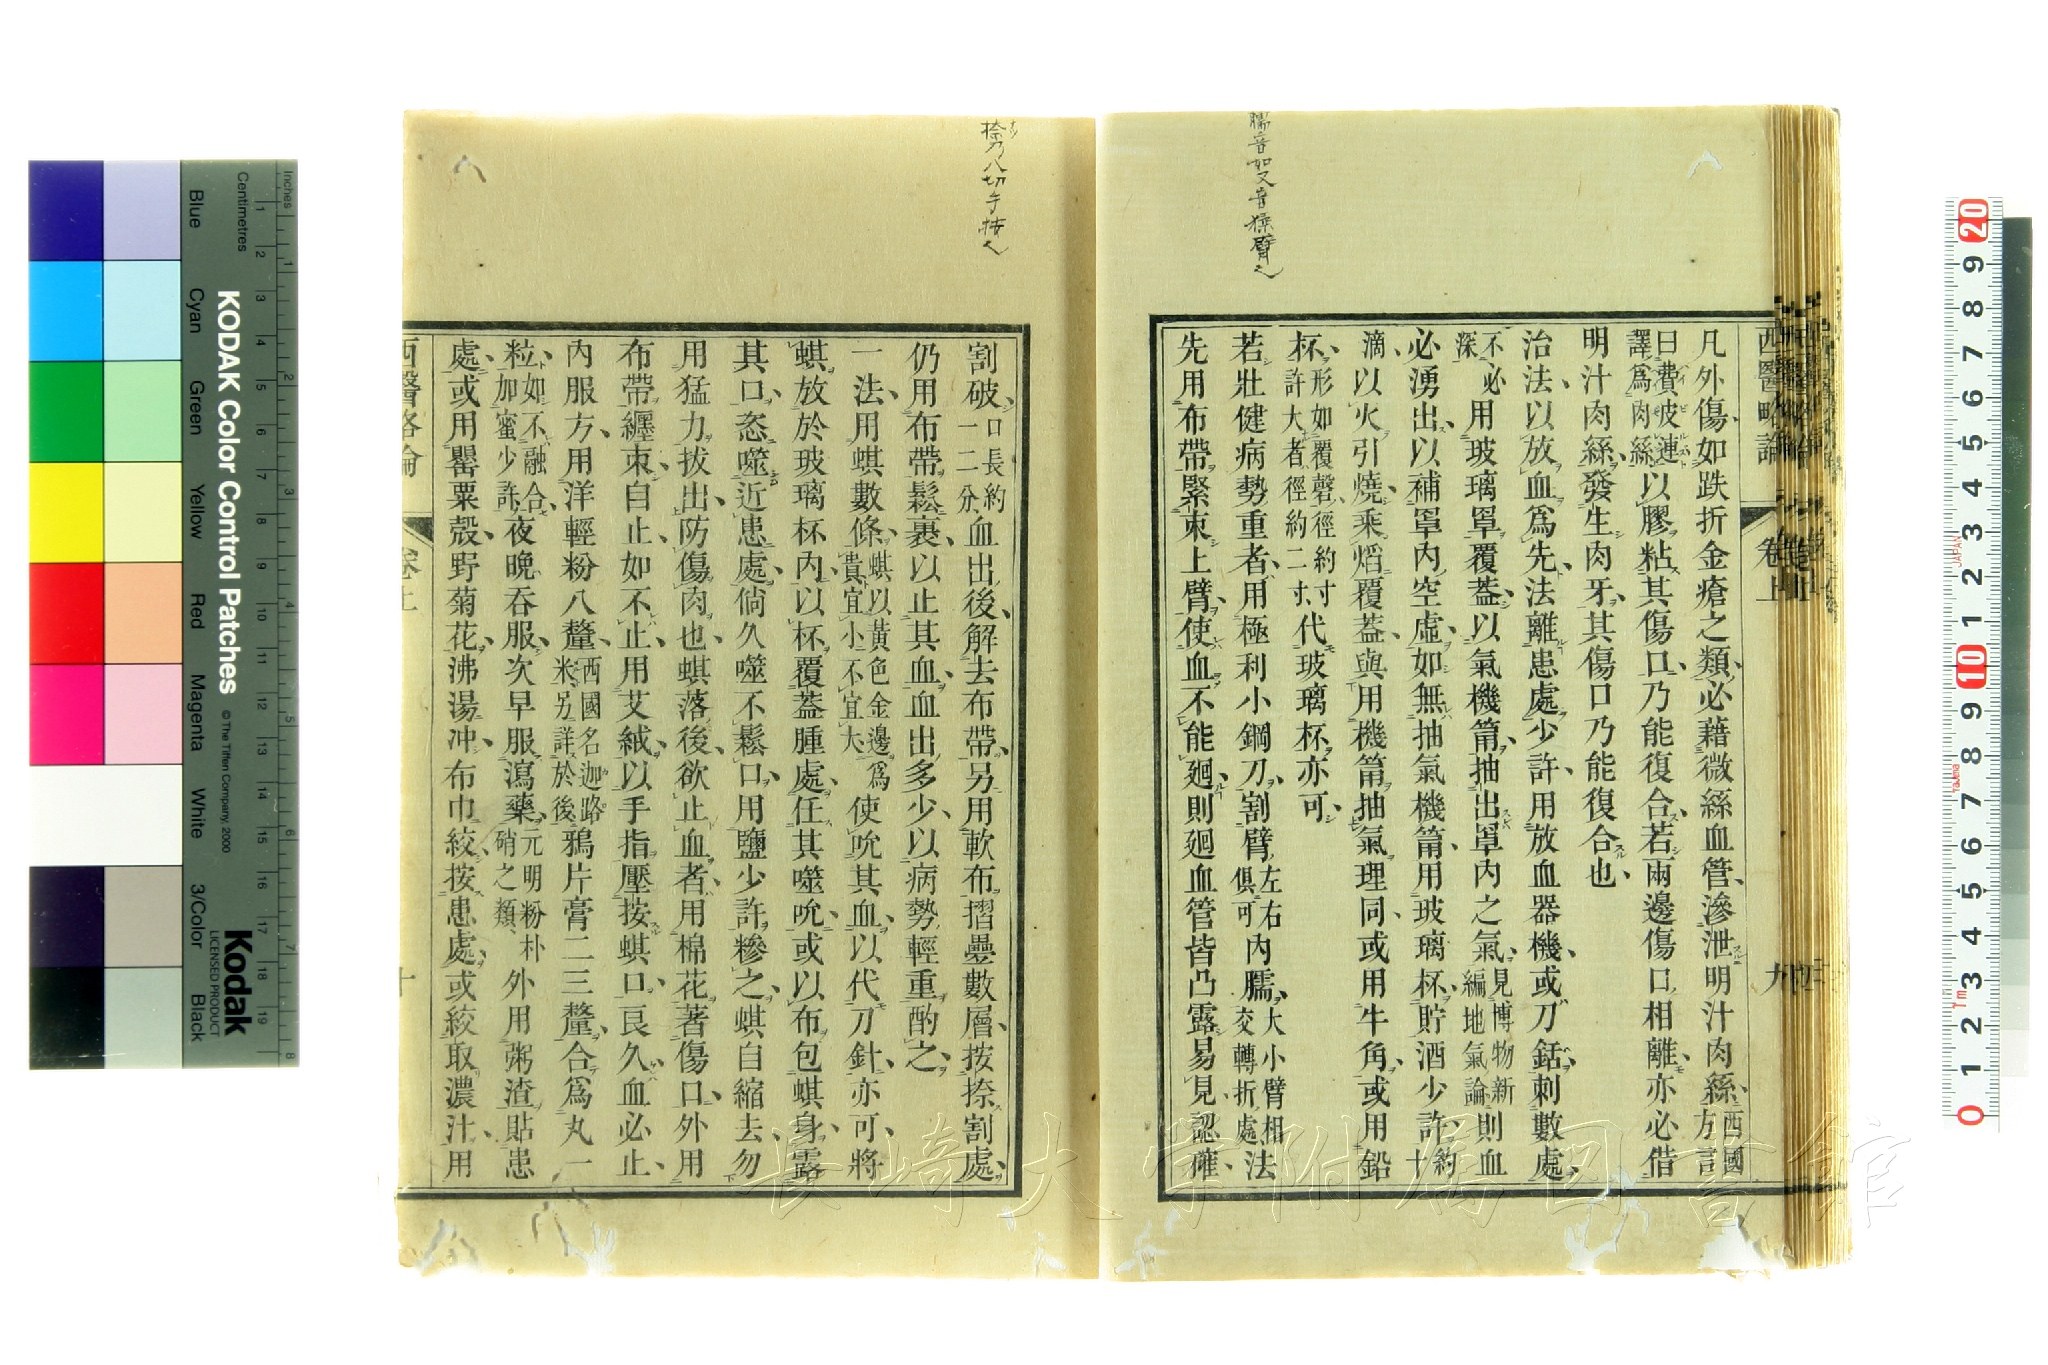 臑音如又音猱臂也
西醫略論
卷上
九
凡外傷、如跌折金瘡之類、必藉微絲血管、滲泄明汁肉絲、西國方言
曰費彼連譯爲肉絲以膠粘其傷口、乃能復合、若兩邊傷口相離、亦必借
明汁肉絲、發生肉牙、其傷口乃能復合也、
治法、以放血爲先、法離患處少許、用放血器機、或刀銛刺數處、
不必深用玻璃罩覆蓋、以氣機筩、抽出罩內之氣、見博物新編地氣論則血
必湧出、以補罩內空虛、如無抽氣機筩、用玻璃杯、貯酒少許、約十
滴、以火引燒、乘熖覆蓋、與用機筩抽氣理同、或用牛角、或用鉛
杯、形如覆磬、徑約寸許、大者徑約二寸、代玻璃杯亦可、
若壯健病勢重者、用極利小鋼刀、割臂、左右俱可內臑、大小臂相交轉折處、法
先用布帶緊束上臂、使血不能廻、則廻血管皆凸露易見、認確、
捺乃八切手按也
割破、口長約一二分、血出後、解去布帶、另用軟布摺疊數層、按捺割處、
仍用布帶鬆裹、以止其血、血出多少、以病勢輕重酌之、
一法、用蜞數條、蜞以黃色金邊爲貴、宜小不宜大、使吮其血、以代刀針、亦可、將
蜞放於玻璃杯內、以杯覆蓋腫處、任其噬吮、或以布包蜞身、露
其口、恣噬近患處、倘久噬不鬆口、用鹽少許糝之、蜞自縮去、勿
用猛力拔出、防傷肉也、蜞落後、欲止血者、用棉花著傷口、外用
布帶纏束、自止、如不止、用艾絨、以手指壓按蜞口、良久血必止、
內服方、用洋輕粉八釐、西國名迦路米、另詳於後鴉片膏二三釐、合爲丸一
粒、如不融合、加蜜少許、夜晚吞服、次早服瀉藥、元明粉朴硝之類、外用粥渣貼患
處、或用罌粟殼、野菊花、沸湯冲、布巾絞按患處、或絞取濃汁、用
西醫略論
卷上
十